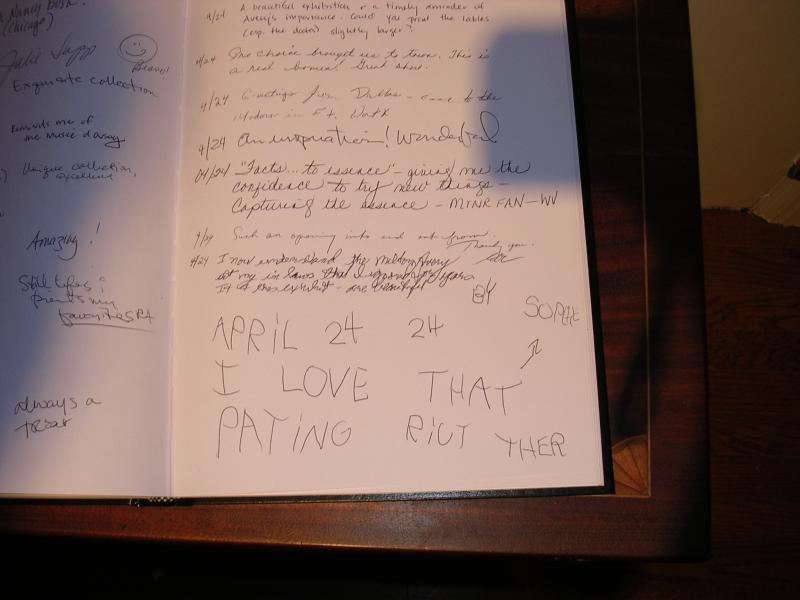 Nancy
(Chicago)
Julie
Bravo!
Exquisite collection
Reminds me of
the musee d'orsay
Unique collection,
excellent
Amazing!
Still lifes &
prints my
favorites RA
always a
treat
4/24 A beautiful exhibition & a timely reminder of
Avery's importance. Could you print the lables
(esp. the dates) slightly larger?
4/24 choice brought us to town. This is
a real bonus! Great show.
4/24 Greetings from Dallas - come to the
Modern in Ft. Worth
4/24 An inspiration! Wonderful
04/24 "Facts... to essence" - giving me the
confidence to try new things -
Capturing the essence - MTNR FAN - WV
4/24 Such an opening into and out from.
Thank you.
4/24 I now understand the Milton Avery
at my in laws that I ignored for years
It & this exhibit - are beautiful
BY SOPHIE
APRiL 24 24
I LOVE THAT
PATiNG RiGT THER